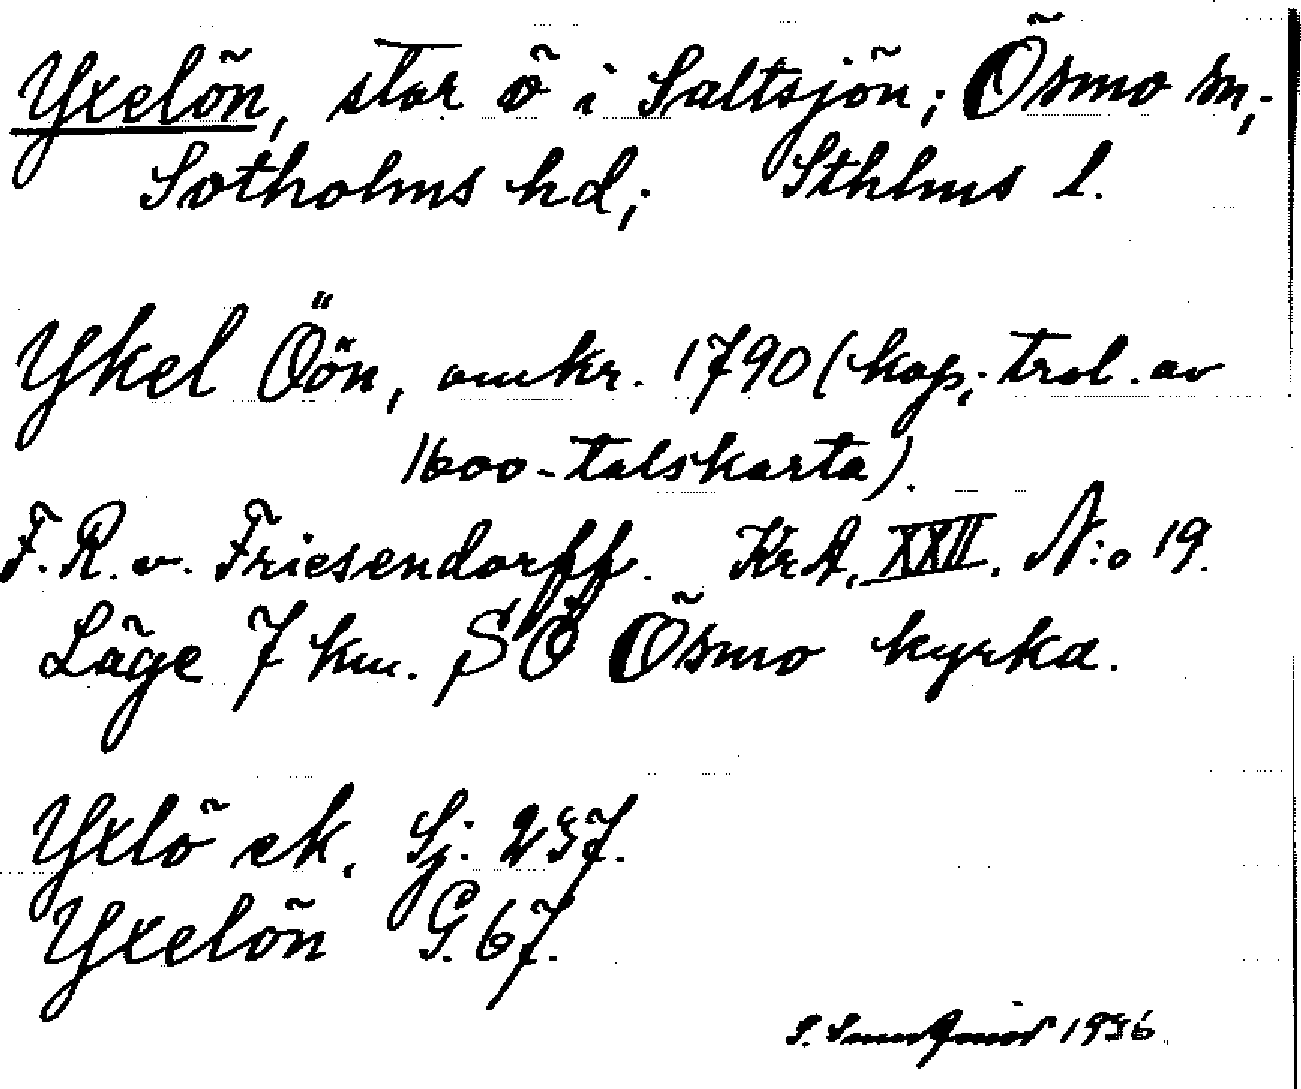 Yxelön, stor ö i Saltsjön; Ösmo sn;
Sotholms hd; Sthlms l.
Ykel Öön, omkr. 1790 (kop; trol. av
1600-talskarta).
F. R. v. Friesendorff. KrA, XXII. N:o 19.
Läge 7 km. SÖ Ösmo kyrka.
Yxlö ek. Sj. 257.
Yxelön G. 67.
S. 1936